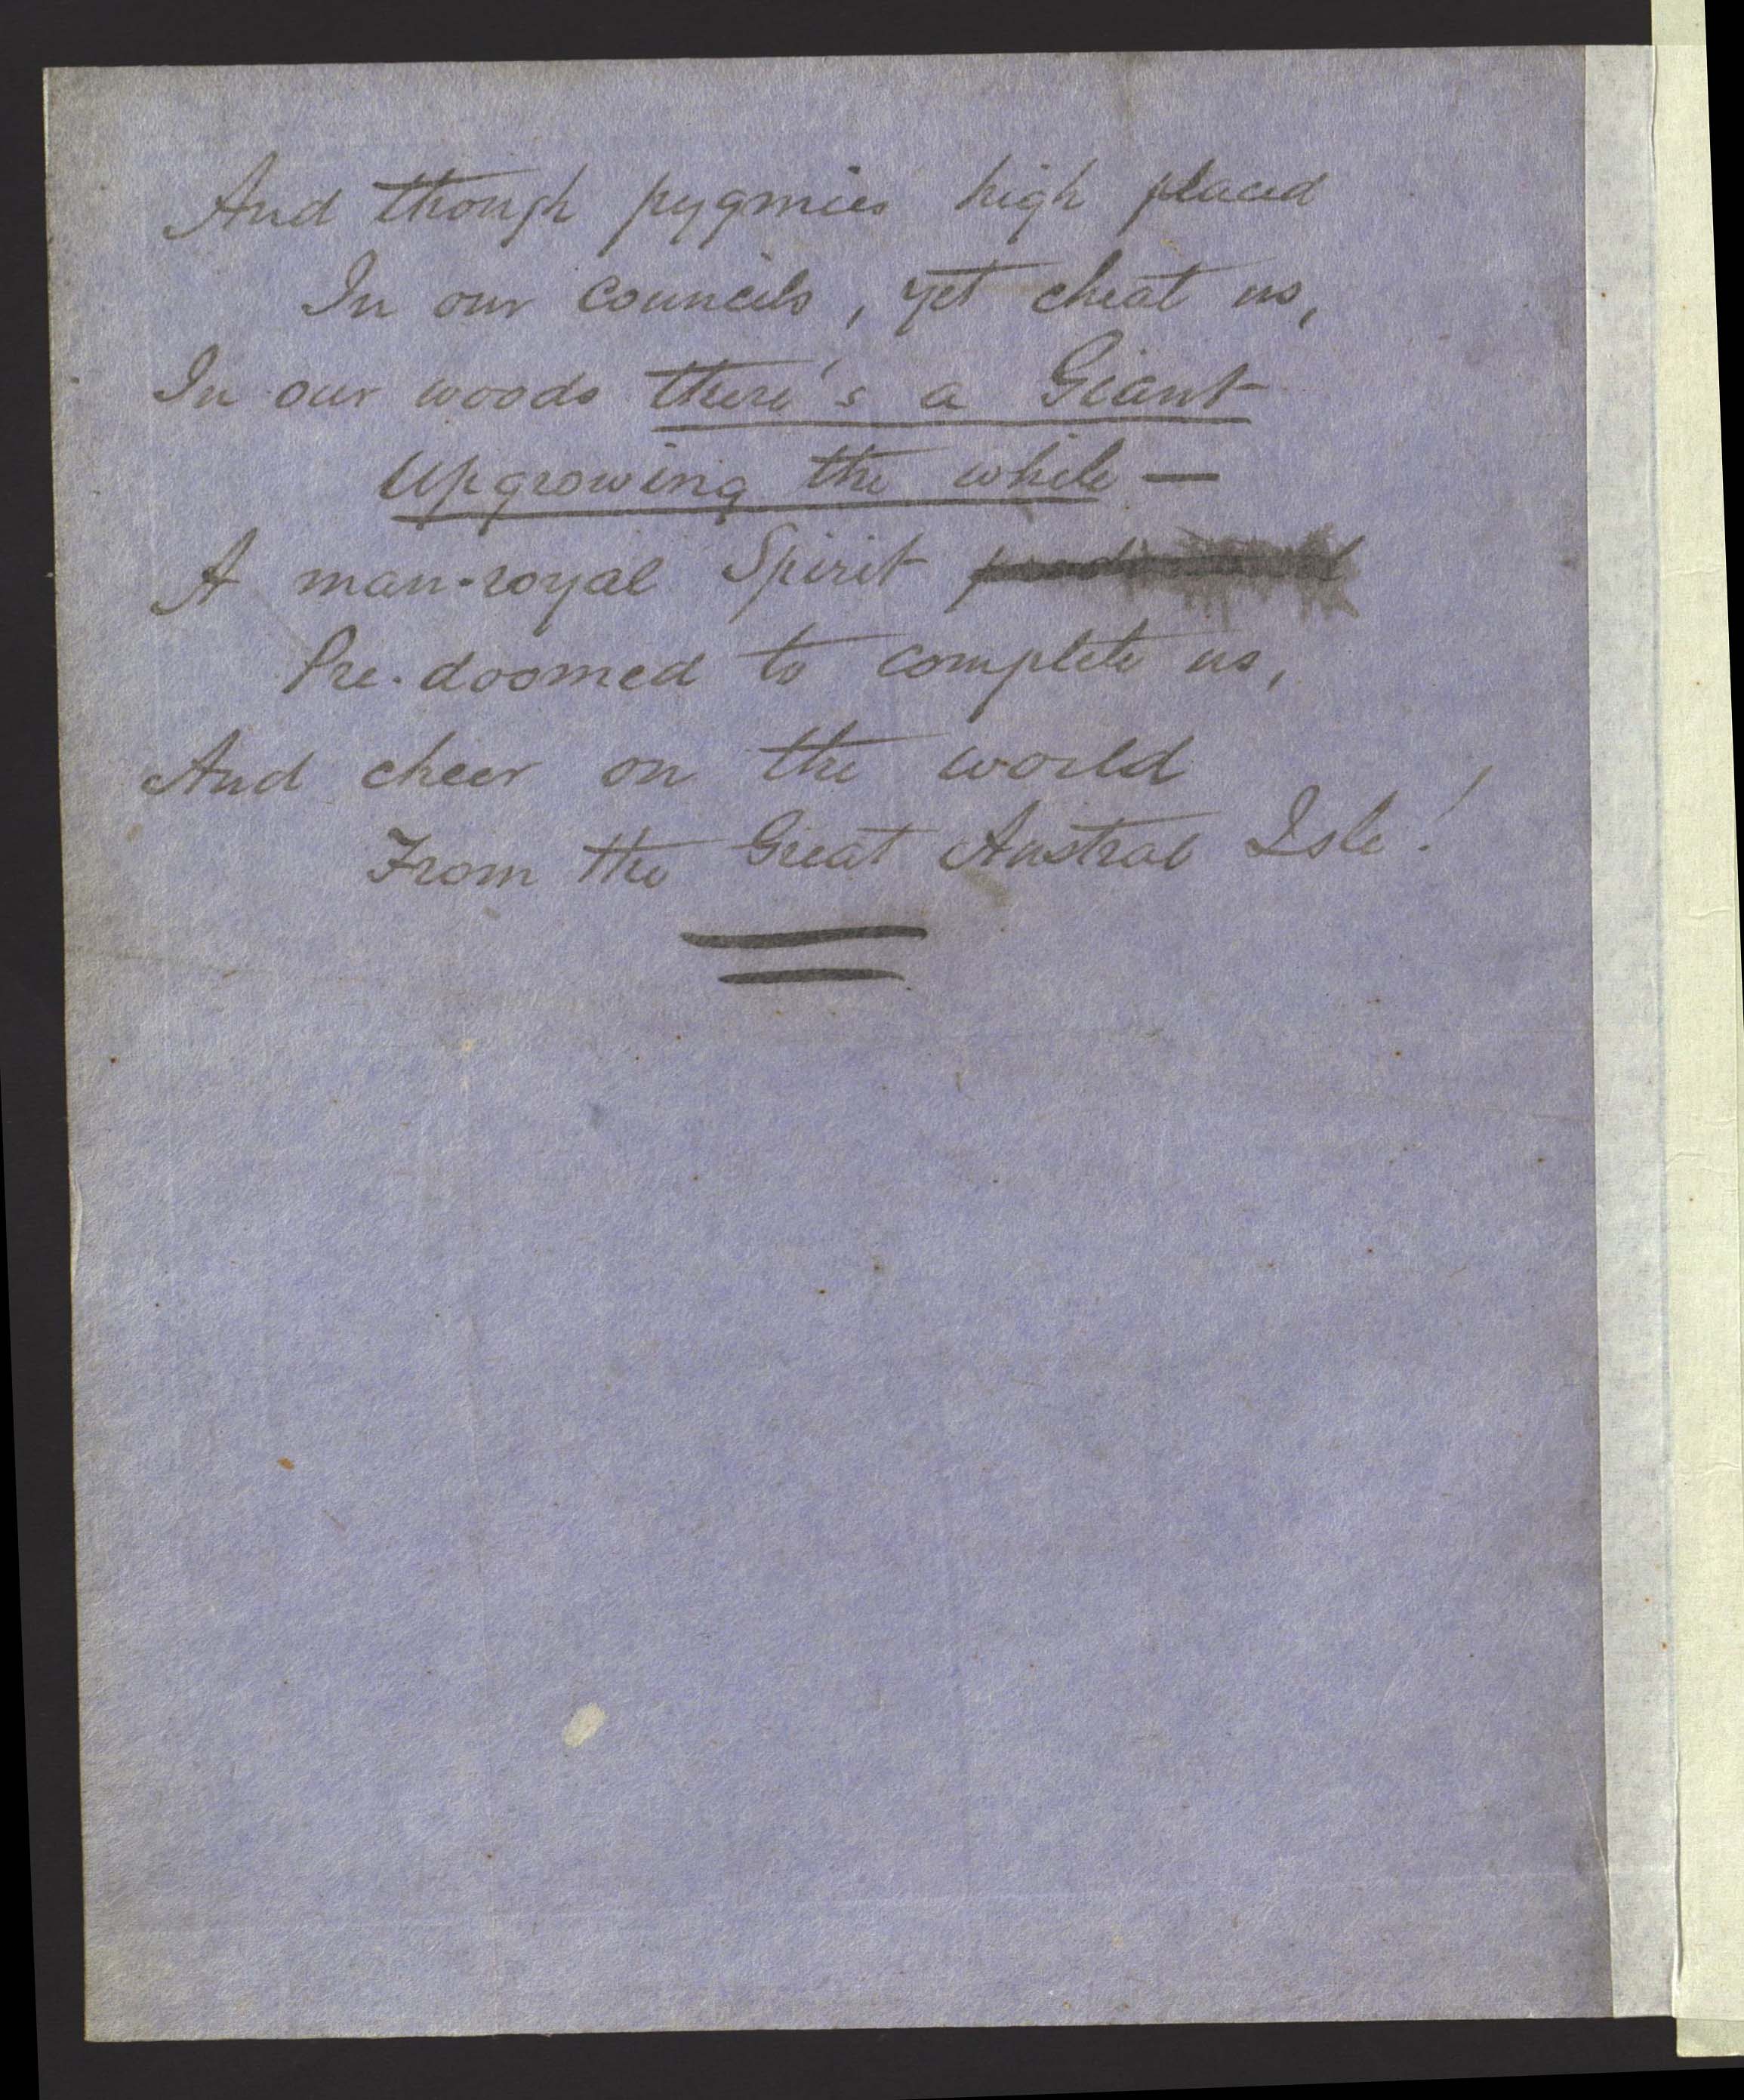 And though pygmies high placed
In our Councils, yet cheat us,
In our woods there's a Giant
Upgrowing the while —
A man-royal Spirit
Pre-doomed to complete us,
And cheer on the world
From the Great Austral Isle!